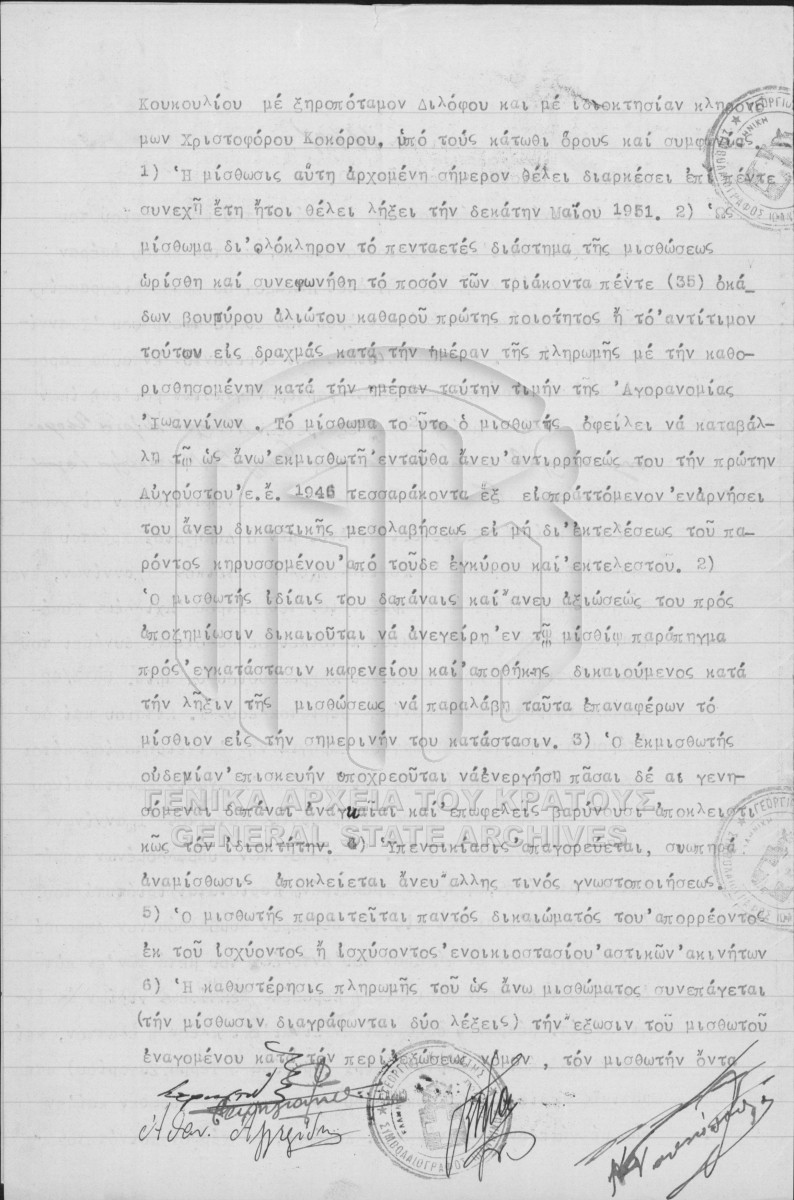 Κουκουλίου μέ ξηροπόταμον Διλόφου και μέ ιδιοκτησίαν κληρονό
μων Χριστοφόρου Κοκόρου, ὑπό τούς κάτωθι ὅρους καί συμφωνίας
1) Ἡ μίσθωσις αὕτη ἀρχομένη σήμερον θέλει διαρκέσει ἐπί πέντε
συνεχῆ ἔτη ἤτοι θέλει λήξει τήν δεκάτην Μαΐου 1951. 2) Ὡς
μίσθωμα δι' ὁλόκληρον τό πενταετές διάστημα τῆς μισθώσεως
ὡρίσθη καί συνεφωνήθη τό ποσόν τῶν τριάκοντα πέντε (35) ὀκά-
δων βουτύρου ἀλιώτου καθαροῦ πρώτης ποιότητος ἤ τό ἀντίτιμον
τούτων εἰς δραχμάς κατά τήν ἡμέραν τῆς πληρωμῆς μέ τήν καθο-
ρισθησομένην κατά τήν ημέραν ταύτην τιμήν τῆς Ἀγορανομίας
Ἰωαννίνων . Τό μίσθωμα το ῦτο ὁ μισθωτής ὀφείλει νά καταβάλ-
λη τῷ ὡς ἄνω ἐκμισθωτῇ ἐνταῦθα ἄνευ ἀντιρρήσεώς του τήν πρώτην
Αὐγούστου ἐ.ἔ. 1946 τεσσαράκοντα ἕξ εἰσπραττόμενον ἐν ἀρνήσει
του ἄνευ δικαστικῆς μεσολαβήσεως εἰ μή δι' ἐκτελέσεως τοῦ πα-
ρόντος κηρυσσομένου ἀπό τοῦδε ἐγκύρου καί ἐκτελεστοῦ. 2)
Ὁ μισθωτής ἰδίαις του δαπάναις καί ἄνευ ἀξιώσεώς του πρός
ἀποζημίωσιν δικαιοῦται νά ἀνεγείρη ἐν τῷ μισθίῳ παράπηγμα
πρός ἐγκατάστασιν καφενείου καί ἀποθήκης δικαιούμενος κατά
τήν λῆξιν τῆς μισθώσεως νά παραλάβη ταῦτα ἐπαναφέρων τό
μίσθιον εἰς τήν σημερινήν του κατάστασιν. 3) Ὁ ἐκμισθωτής
οὐδεμίαν ἐπισκευήν ὑποχρεοῦται νά ἐνεργήση πᾶσαι δέ αι γενη-
σόμεναι δαπάναι ἀναγκαῖαι καί ἐπωφελεῖς βαρύνουσι ἀποκλειστι
κῶς τόν ἰδιοκτήτην. 4) Ὑπενοικίασις ἀπαγορεύεται, σιωπηρά
ἀναμίσθωσις ἀποκλείεται ἄνευ ἄλλης τινός γνωστοποιήσεως.
5) Ὁ μισθωτής παραιτεῖται παντός δικαιώματός του ἀπορρέοντος
ἐκ τοῦ ἰσχύοντος ἤ ἰσχύσοντος ἐνοικιοστασίου ἀστικῶν ἀκινήτων
6) Ἡ καθυστέρησις πληρωμῆς τοῦ ὡς ἄνω μισθώματος συνεπάγεται
(τήν μίσθωσιν διαγράφωνται δύο λέξεις) τήν ἔξωσιν τοῦ μισθωτοῦ
ἐναγομένου κατά τόν περί ἐξώσεως νόμον , τόν μισθωτήν ὄντα
ΓΕΝΙΚΑ ΑΡΧΕΙΑ ΤΟΥ ΚΡΑΤΟΥΣ
GENERAL STATE ARCHIVES